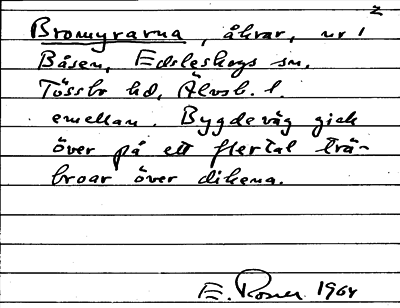 2
Bromyrarna, åkrar, nr 1
Båsen, Edsleskogs sn.
Tössbo hd, Älvsb. l.
emellan. Bygdeväg gick
över på ett flertal trä-
broar över dikena.
E. Rosen 1964